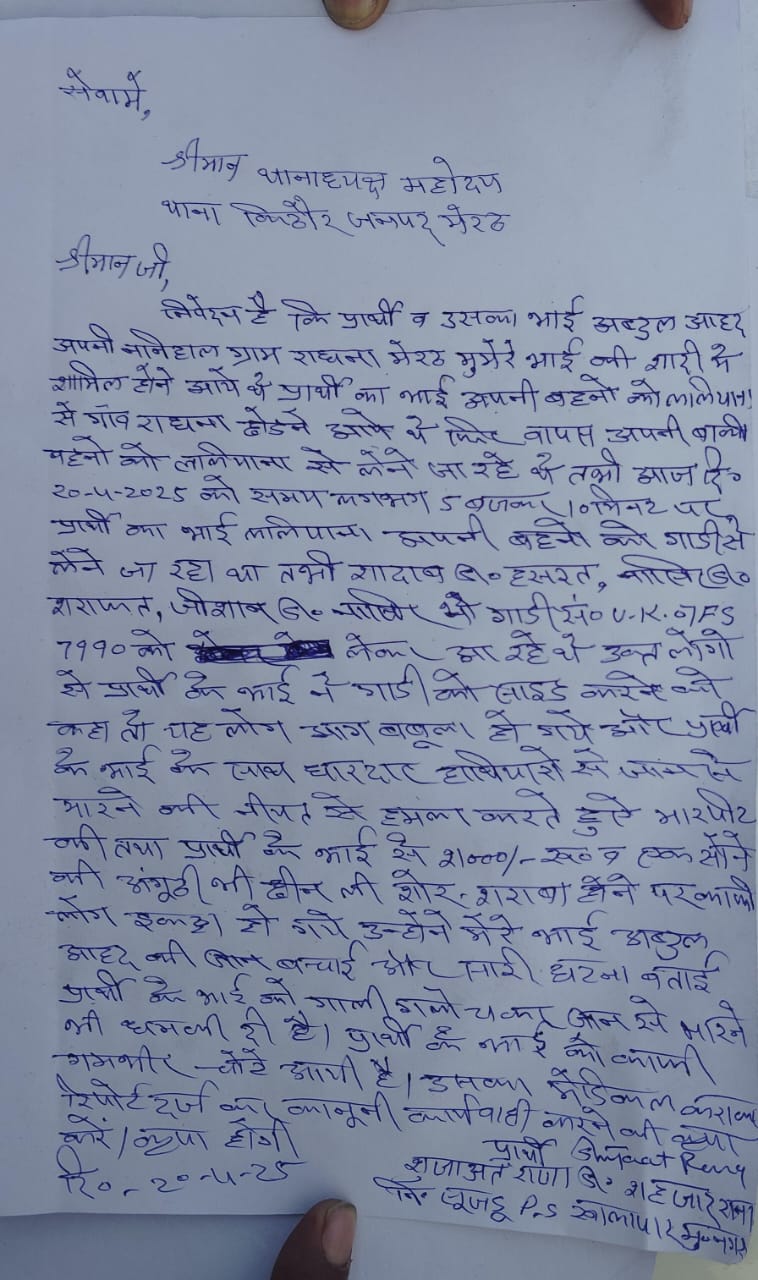 सेवामे,
श्रीमान थानाध्यक्ष महोदय
थाना किठौर जनपद मेरठ
श्रीमान जी,
निवेदन है कि प्रार्थी व उसका भाई अब्दुल आहद
अपनी ननिहाल ग्राम राधना मेरठ मुमेरे भाई की शादी मे
शामिल होने आये थे प्रार्थी का भाई अपनी बहनो को लालियाना
से गाँव राधना छोडने आये थे फिर वापस अपनी बाकी
बहनो को लालियाना से लेने जा रहे थे तभी आज दि०
20-4-2025 को समय लगभग 5 बजकर 10 मिनट पर
प्रार्थी का भाई लालियाना अपनी बहनो को गाडी से
लेने जा रहा था तभी शादाब S/o हसरत, S/o
शराफत, S/o भी गाडी सं० U.K. 07FS
7990 को लेकर आ रहे थे उक्त लोगो
से प्रार्थी के भाई ने गाडी को साइड करने को
कहा तो यह लोग आग बबूला हो गये और प्रार्थी
के भाई के साथ धारदार हाथियारो से जान से
मारने की नीयत से हमला करते हुऐ मारपीट
की तथा प्रार्थी के भाई से 21000/- रू० व एक सोने
की अंगूठी भी छीन ली शोर-शराबा होने पर काफी
लोग इकठ्ठा हो गये उन्होने मेरे भाई अब्दुल
आहद की जान बचाई और सारी घटना बताई
प्रार्थी के भाई को गाली गलोच कर जान से मारने
की धमकी दी है। प्रार्थी के भाई को काफी
गम्भीर चोटे आयी है। उसका मेडिकल कराकर
रिपोर्ट दर्ज कर कानूनी कार्यवाही करने की कृपा
करें। कृपा होगी
प्रार्थी
दि०-20-4-25
शुजाअत राणा S/o शहजाद राना
नि० सूजडू P.S खालापार मु०नगर